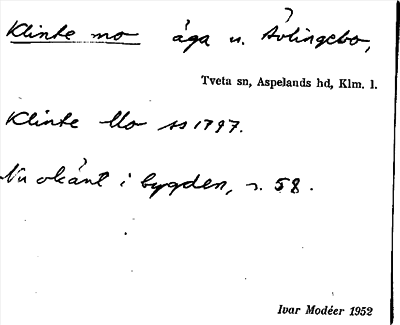 Klinte mo äga u. Åvlingebo,
Tveta sn, Aspelands hd, Klm. l.
Klinte Mo ss 1797.
Nu okänt i bygden, s. 58.
Ivar Modéer 1952